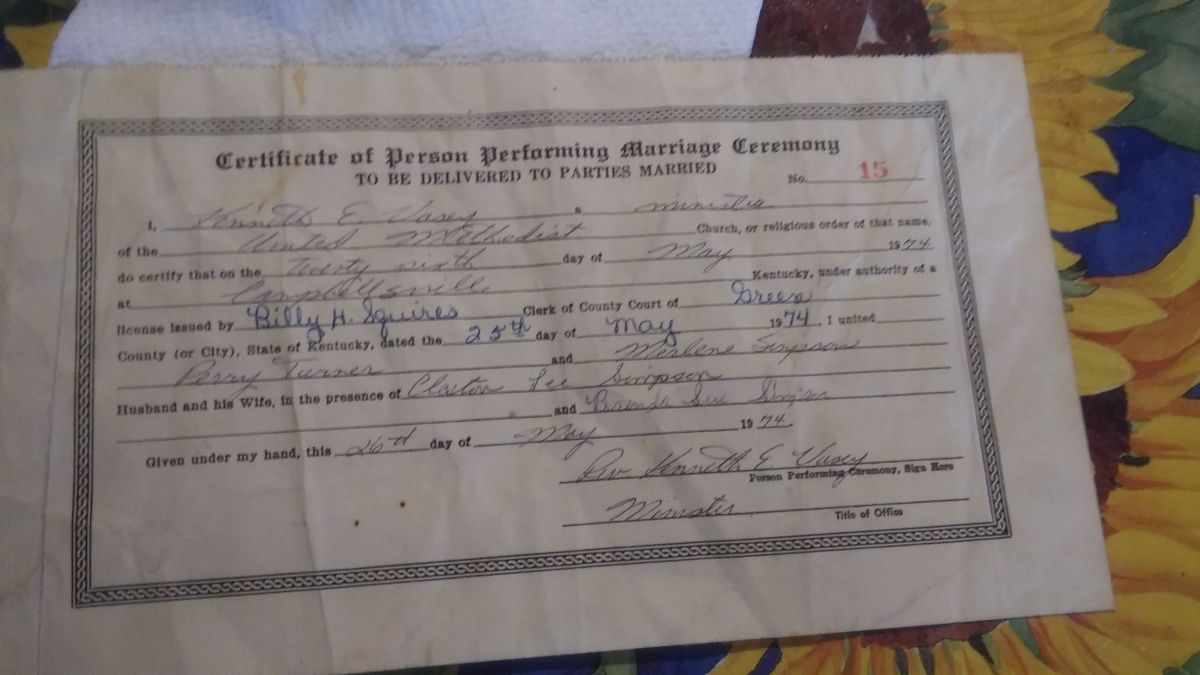 Certificate of Person Performing Marriage Ceremony
TO BE DELIVERED TO PARTIES MARRIED
No. 15
I, Kenneth E. Vasey a minister
of the United Methodist Church, or religious order of that name,
do certify that on the twenty sixth day of May 1974
at Campbellsville Kentucky, under authority of a
license issued by Billy H. Squires Clerk of County Court of Green
County (or City), State of Kentucky, dated the 25th day of May 1974, I united
Perry Turner and Merlene Simpson
Husband and his Wife, in the presence of Clayton Lee Simpson
and Brenda Sue
Given under my hand, this 26th day of May 1974.
Rev Kenneth E. Vasey
Person Performing Ceremony, Sign Here
Minister
Title of Office